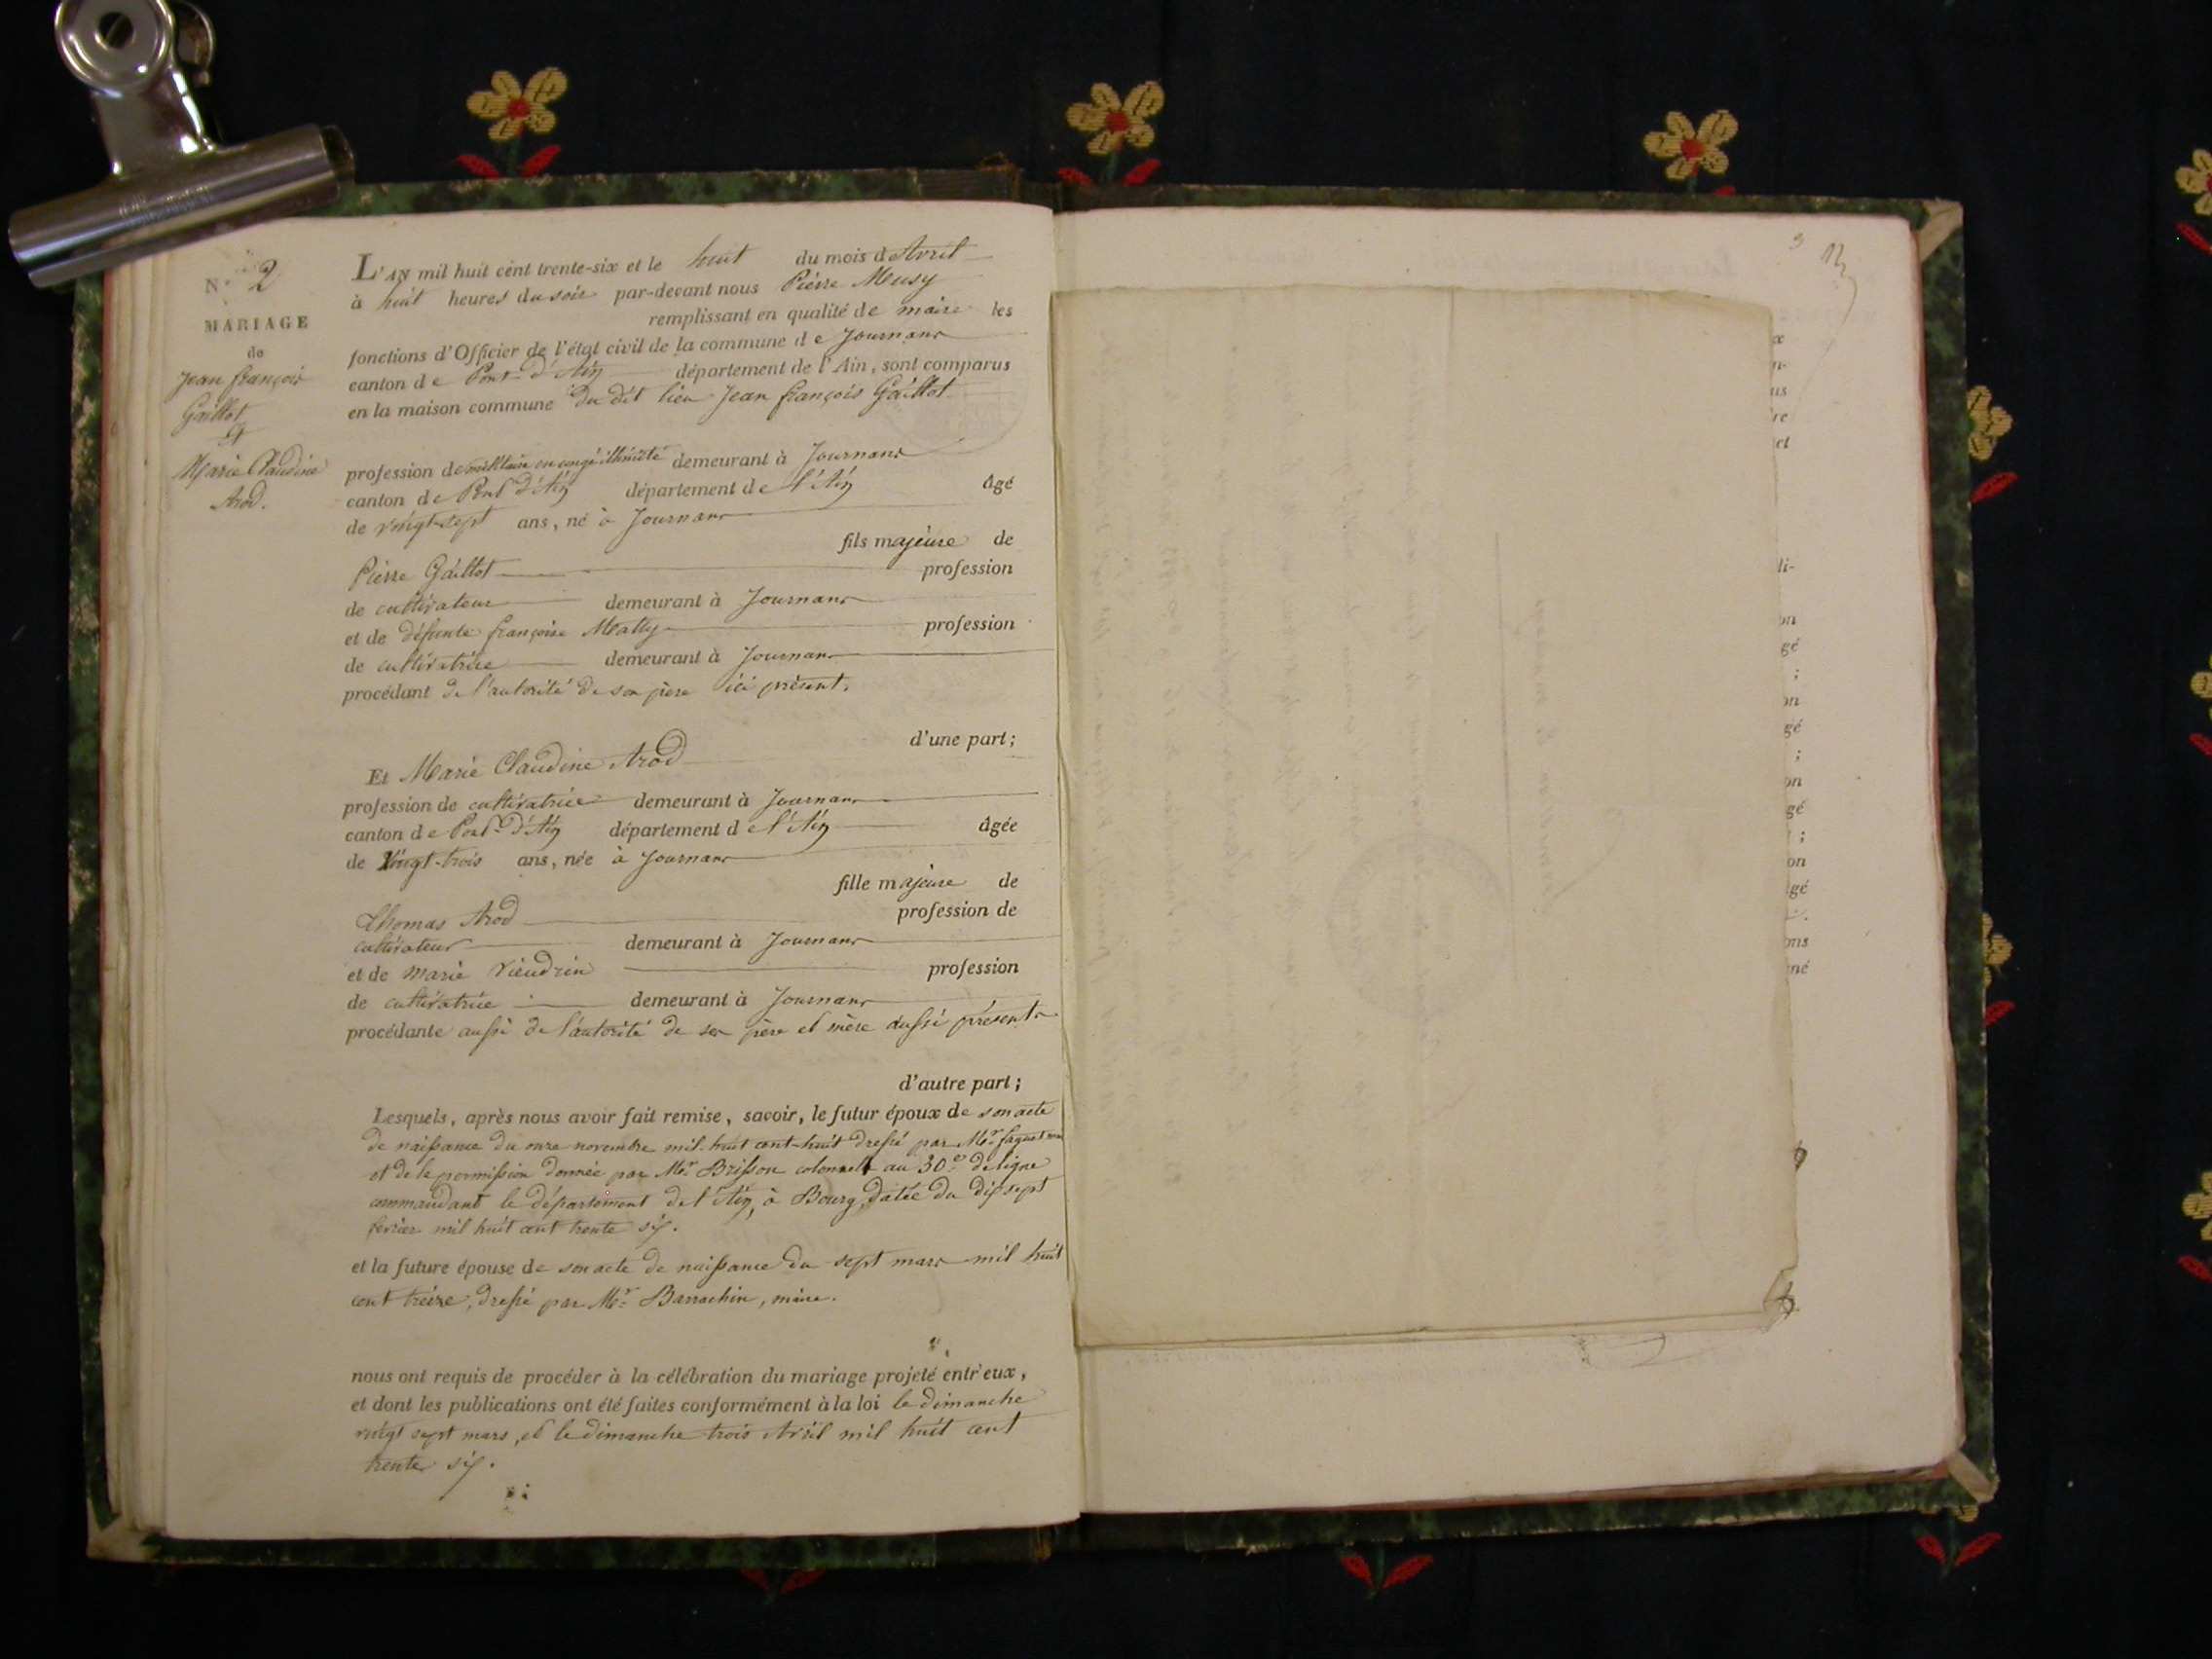 N.o 2
MARIAGE
de
Jean françois
Gaillot
et
Marie Claudine
Arod.
L'AN mil huit cent trente-six et le huit du mois d'Avril
à huit heures du soir par-devant nous Pierre Musy
remplissant en qualité de maire les
fonctions d'Officier de l'état civil de la commune de Journans
canton de Pont-d'Ain département de l'Ain, sont comparus
en la maison commune du dit lieu Jean françois Gaillot
profession de militaire en congé illimité demeurant à Journans
canton de Pont d'Ain département de l'Ain âgé
de vingt-sept ans, né à Journans
fils majeure de
Pierre Gaillot profession
de cultivateur demeurant à Journans
et de défunte françoise profession
de cultivatrice demeurant à Journans
procédant de l'autorité de son père ici présent.
d'une part;
Et Marie Claudine Arod
profession de cultivatrice demeurant à Journans
canton de Pont-d'Ain département de l'Ain âgée
de Vingt-trois ans, née à Journans
fille majeure de
Thomas Arod profession de
cultivateur demeurant à Journans
et de marie vieudrin profession
de cultivatrice demeurant à Journans
procédante aussi de l'autorité de ses père et mère aussi présents
d'autre part;
Lesquels, après nous avoir fait remise, savoir, le futur époux de son acte
de naissance du onze novembre mil huit cent-huit dressé par Mr. faguet
et de la permission donnée par Mr. Brisson colonnel au 30.e de ligne
commandant le département de l'Ain, à Bourg, datée du dix sept
fevrier mil huit cent trente six.
et la future épouse de son acte de naissance du sept mars mil huit
cent treize, dressé par Mr. Barrachin, maire.
nous ont requis de procéder à la célébration du mariage projeté entr'eux,
et dont les publications ont été faites conformément à la loi le dimanche
vingt sept mars, et le dimanche trois Avril mil huit cent
trente six.
3
x
n-
us
re
et
li-
on
gé
;
on
gé
;
on
gé
;
on
gé
ons
né